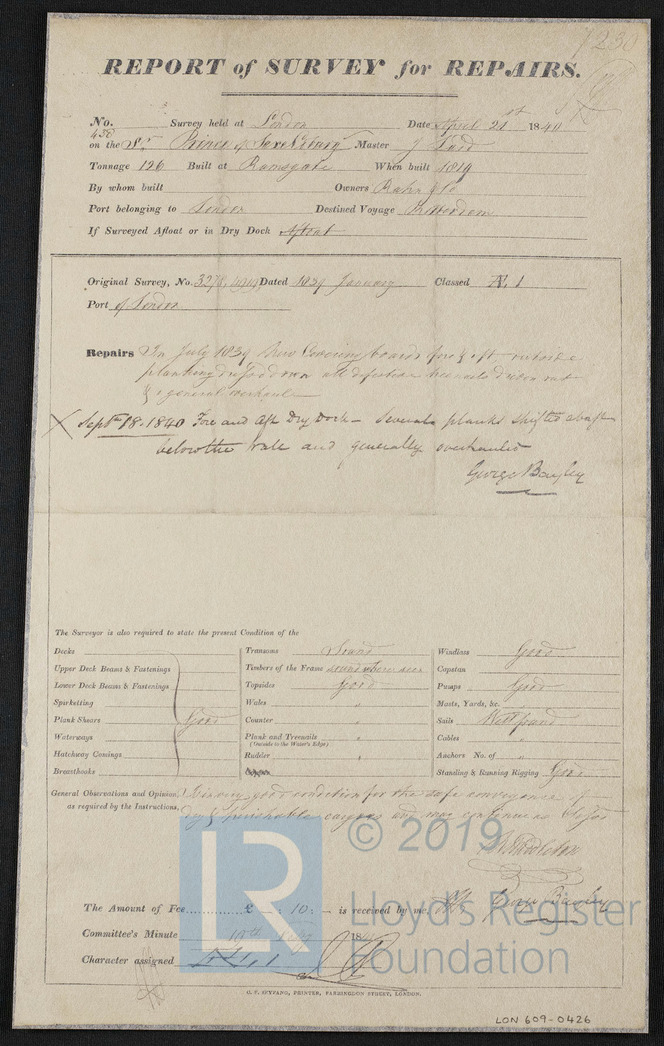 1230
REPORT of SURVEY for REPAIRS.
No. 438 Survey held at London Date April 21st 1840
on the Sr Prince of Master J
Tonnage 126 Built at Ramsgate When built 1819
By whom built Owners & Co
Port belonging to London Destined Voyage Rotterdam
If Surveyed Afloat or in Dry Dock Afloat
Original Survey, No. 3278 Dated 1839 January Classed Æ 1
Port of London
Repairs In July 1839 New Covering boards fore & aft outside
planking dressed down all defective treenails driven out
& a general overhaul
X Septr 18. 1840 Fore and Aft Dry Dock - Several planks shifted abaft
below the wale and generally overhauled
George Bayley
The Surveyor is also required to state the present Condition of the
Decks
Upper Deck Beams & Fastenings
Lower Deck Beams & Fastenings
Spirketting
Plank Shears Good
Waterways
Hatchway Comings
Breasthooks
Transoms Sound
Timbers of the Frame sound where seen
Topsides Good
Wales "
Counter "
Plank and Treenails "
(Outside to the Water's Edge)
Rudder "
Windlass Good
Capstan
Pumps Good
Masts, Yards, &c.
Sails Well found
Cables "
Anchors No. of "
Standing & Running Rigging Good
General Observations and Opinion, Is in very good condition for the safe conveyance of
as required by the Instructions, dry & perishable cargoes and may continue as classed
The Amount of Fee............£ - : 10: - is received by me, George Bayley
Committee's Minute 184
Character assigned
G. F. SEYFANG, PRINTER, FARRINGDON STREET, LONDON.
LON 609-0426
LR
© 2019
Lloyd's Register
Foundation